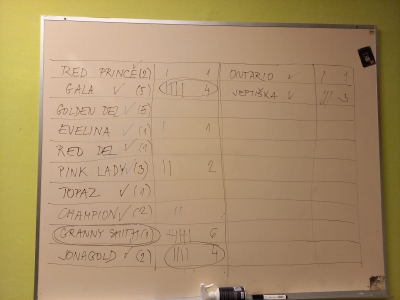 RED PRINCE (2) | 1 ONTARIO ✓ | 1
GALA ✓ (5) |||| 4 JEPTIŠKA ✓ ||| 3
GOLDEN DEL ✓ (5)
EVELINA ✓ (1) | 1
RED DEL ✓ (1)
PINK LADY ✓ (3) || 2
TOPAZ ✓ (1)
CHAMPION ✓ (2) ||
GRANNY SMITH (1) 6
JONAGOLD ✓ (2) |||| 4